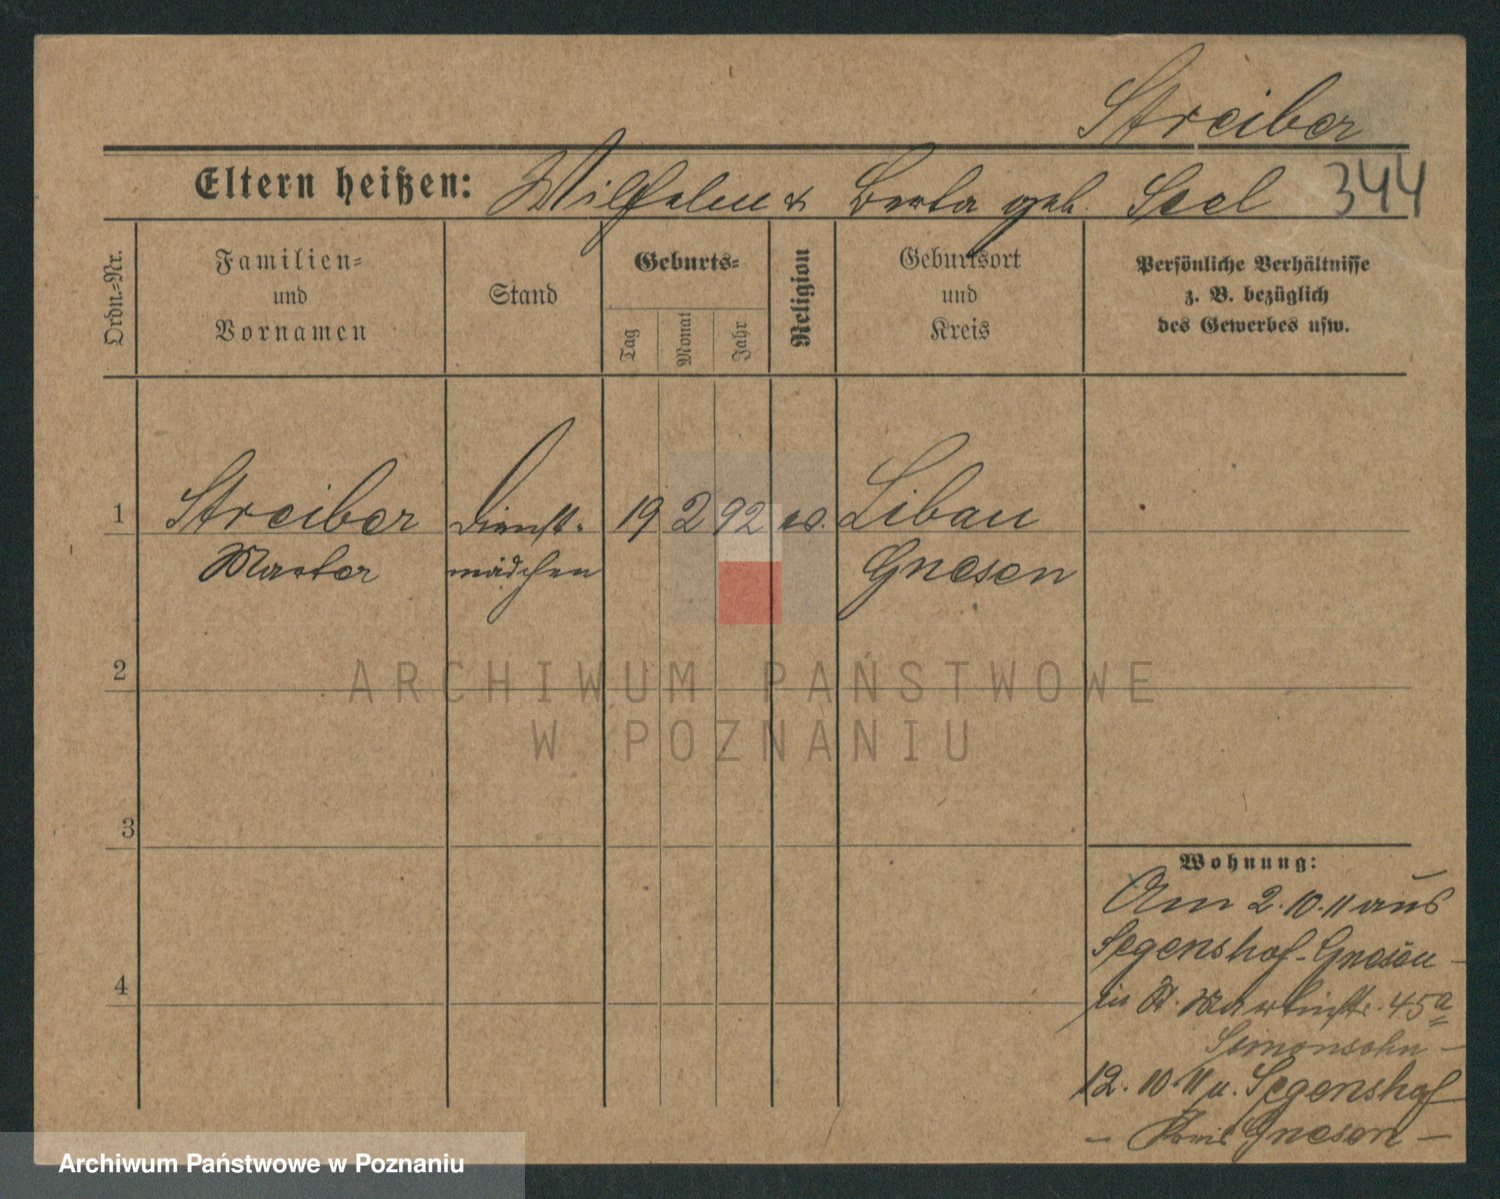 Streiber
Eltern heißen: Wilhelm & Berta geb. Seel 344
Ordn.-Nr.
Familien-
und
Vornamen
Stand
Geburts-
Tag
Monat
Jahr
Religion
Geburtsort
und
Kreis
Persönliche Verhältnisse
z. B. bezüglich
des Gewerbes usw.
1 Streiber Dienst- 19 2 92 ev. Libau
mädchen Gnesen
2
ARCHIWUM PAŃSTWOWE
W POZNANIU
3
Wohnung:
Am 2.10.11 aus
Segenshof-Gnesen
4
in St. Martinstr. 45a
Simonsohn
12. 10 11 n. Segenshof
- Kreis Gnesen -
Archiwum Państwowe w Poznaniu